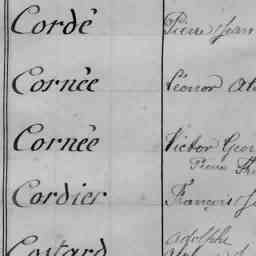 Cordé Pierre Jean
Cornée Léonor
Cornée Victor
Pierre
Cordier François
Costard Adolphe